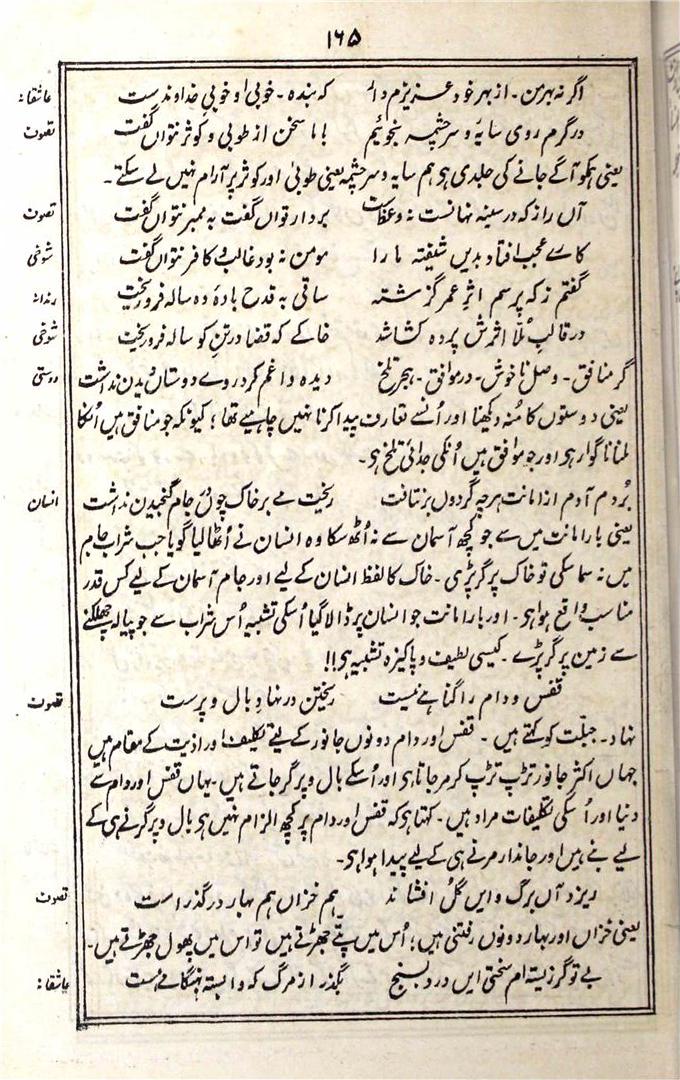 ۱۶۵
عاشقانہ اگر نہ بہر من۔ از بہر خود عزیزم دار کہ بندہ۔ خوبیِ او خوبیِ خداوندست
تصوف در گرم روی سایہ و سرچشمہ نجوئیم با ما سخن از طوبی و کوثر نتواں گفت
یعنی ہمکو آگے جانے کی جلدی ہی ہم سایہ و سرچشمہ یعنی طوبیٰ اور کوثر پر آرام نہیں لے سکتے۔
تصوف آں راز کہ در سینہ نہانست نہ وعظست بر دار تواں گفت بہ ممبر نتواں گفت
شوخی کارے عجب افتاد بدیں شیفتہ ما را مومن نہ بود غالب و کافر نتواں گفت
رندانہ گفتم ز کہ پرسم اثرِ عمر گزشتہ ساقی بہ قدح بادۂ دہ سالہ فرو ریخت
شوخی در قالبِ مُلّا اثرش پردہ کشا شد خاکے کہ قضا در تنِ گوسالہ فرو ریخت
دوستی گر منافق۔ وصل ناخوش۔ ور موافق۔ ہجر تلخ دیدہ داغم کرد روے دوستاں دیدن نداشت
یعنی دوستوں کا مُنہ دیکھنا اور اُنسے تعارف پیدا کرنا نہیں چاہیے تھا؛ کیونکہ جو منافق ہیں اُنکا
لمنا ناگوار ہی اور جو موافق ہیں اُنکی جدائی تلخ ہی۔
انسان بُرد آدم از امانت ہر چہ گردوں بر نتافت ریخت مے بر خاک چوں در جام گنجیدن نداشت
یعنی بارِ امانت میں سے جو کچھ آسمان سے نہ اُٹھ سکا وہ انسان نے اُٹھا لیا گویا جب شراب جام
میں نہ سما سکی تو خاک پر گر پڑی۔ خاک کا لفظ انسان کے لیے اور جام آسمان کے لیے کس قدر
مناسب واقع ہوا ہی۔ اور بار امانت جو انسان پر ڈالا گیا اُسکی تشبیہ اُس شراب سے جو پیالہ چھلکنے
سے زمین پر گر پڑے۔ کیسی لطیف و پاکیزہ تشبیہ ہی!!
تصوف قفس و دام را گناہے نیست ریختن در نہادِ بال و پرست
نہاد۔ جبلّت کو کہتے ہیں۔ قفس اور دام دونوں جانور کے لیے تکلیف اور اذیت کے مقام ہیں
جہاں اکثر جانور تڑپ تڑپ کر مر جاتا ہی اور اُسکے بال و پر گر جاتے ہیں۔ یہاں قفس اور دام سے
دنیا اور اُسکی تکلیفات مراد ہیں۔ کہتا ہی کہ قفس اور دام پر کچھ الزام نہیں ہی بال و پر گرنے ہی کے
لیے بنے ہیں اور جاندار مرنے ہی کے لیے پیدا ہوا ہی۔
تصوف ریزد آں برگ و ایں گُل افشاند ہم خزاں ہم بہار در گذر است
یعنی خزاں اور بہار دونوں رفتنی ہیں؛ اُس میں پتّے جھڑتے ہیں تو اس میں پھول جھڑتے ہیں۔
عاشقانہ بے تو گر زیستہ ام سختیِ ایں درد بسنج بگذر از مرگ کہ وابستہ بہنگامے ہست